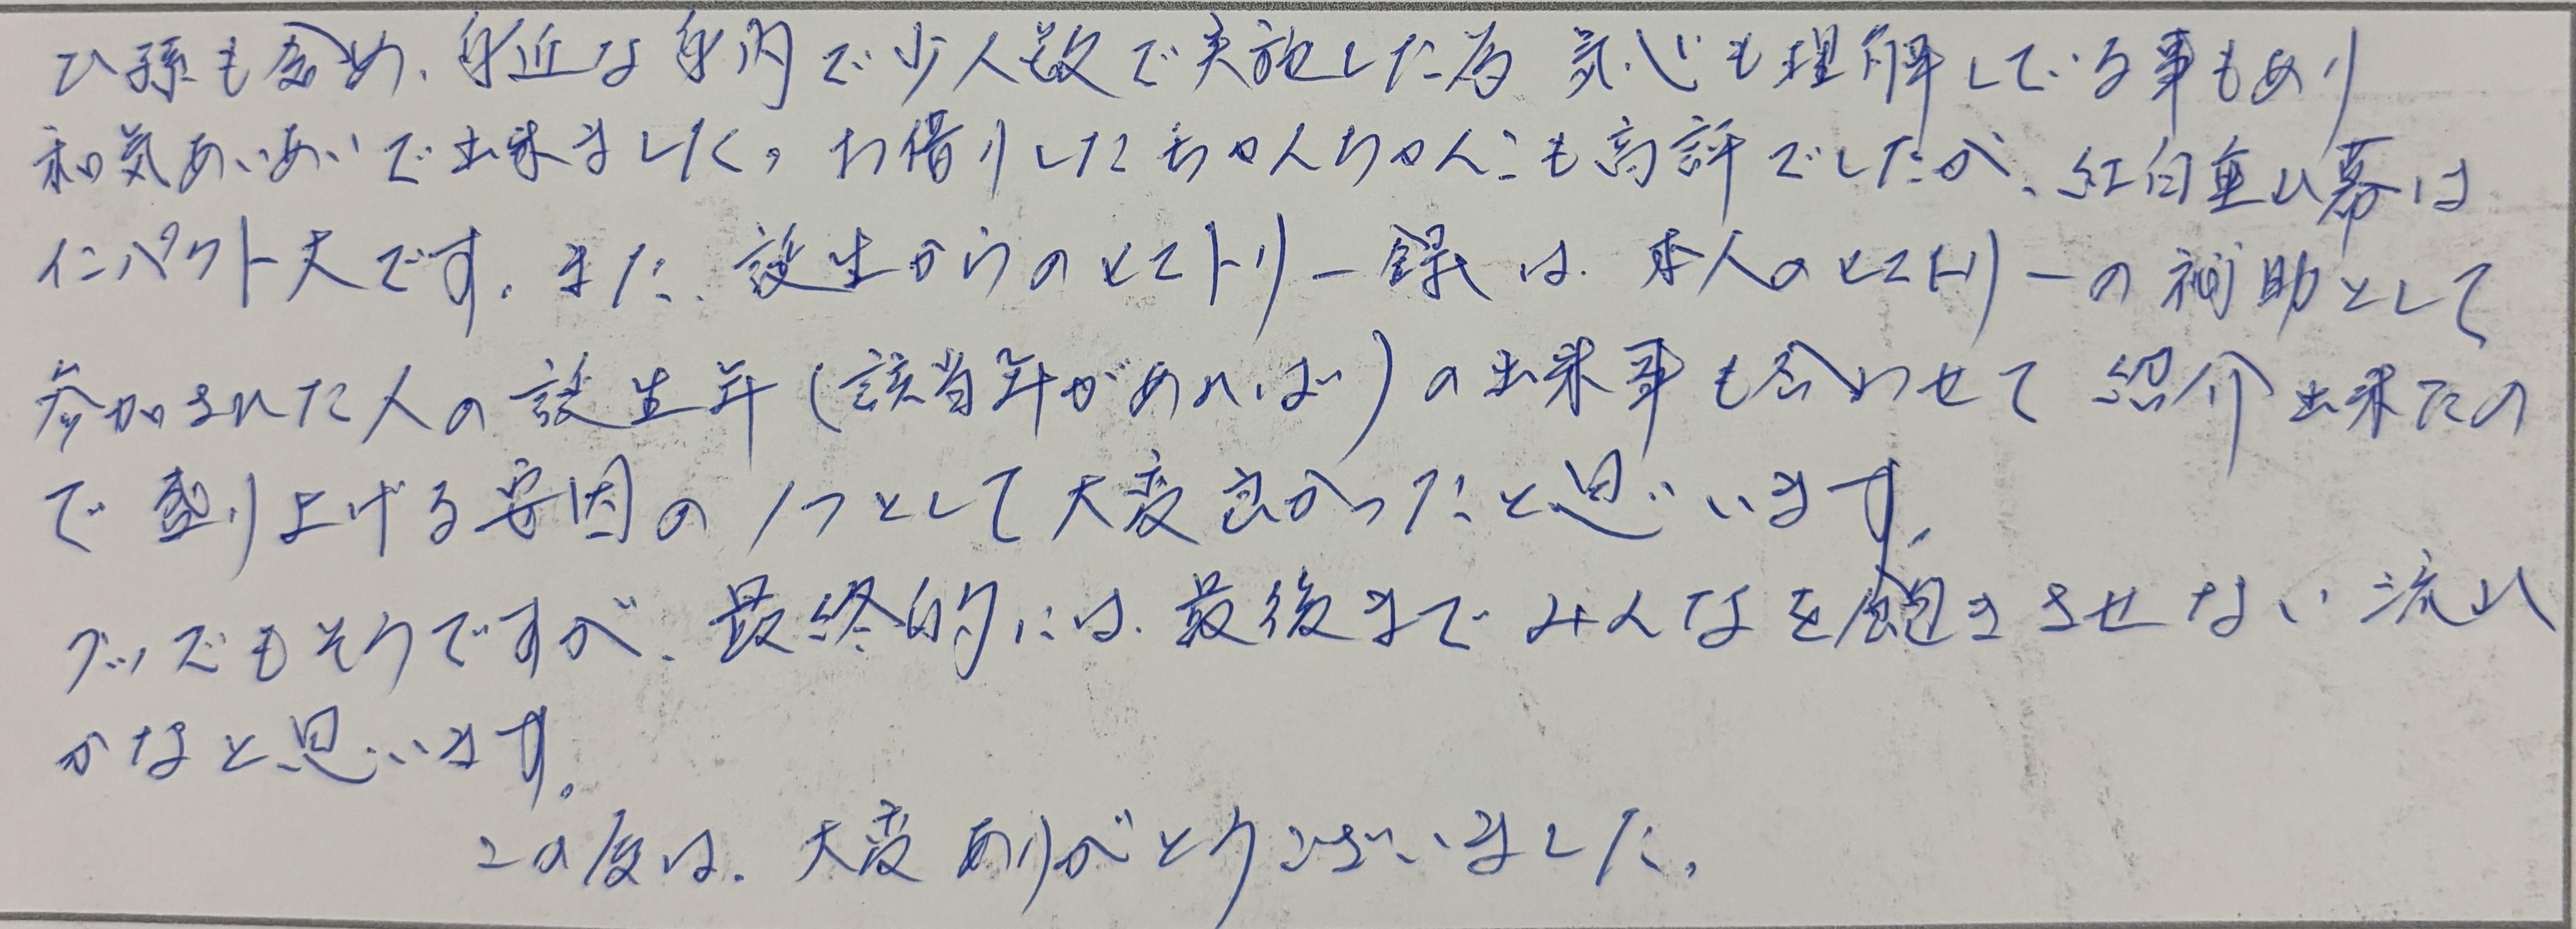 ひ孫も含め、身近な身内で少人数で実施した為 気心も理解している事もあり
和気あいあいで出来ました。お借りしたちゃんちゃんこも高評でしたが、紅白垂れ幕は
インパクト大です。また、誕生からのヒストリー録は、本人のヒストリーの補助として
参加された人の誕生年(該当年があれば)の出来事も合わせて紹介出来たの
で盛り上げる要因の1つとして大変良かったと思います。
グッズもそうですが、最終的には、最後までみんなを飽きさせない流れ
かなと思います。
この度は、大変ありがとうございました。